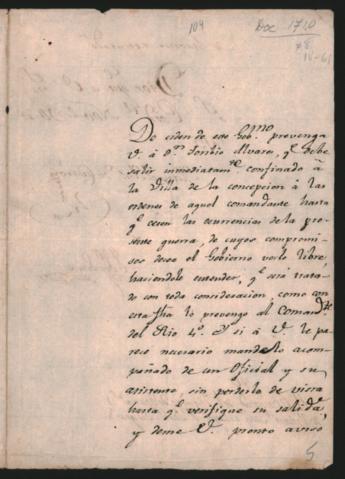 104
Doc 1720
De orden de este Gob.no prevenga
V. á D.n Toribio Alvares, q.e debe
salir inmediatam.te confinado á
la Villa de la concepcion á las
ordenes de aquel comandante hasta
q.e cesen las ocurrencias de la pre-
sente guerra, de cuyos compromi-
sos desea el Gobierno verlo libre,
haciendole entender, q.e será trata-
do con toda consideracion, como con
esta fha lo prevengo al Comand.te
del Rio 4.º Y si á V. le pa-
rece necesario mandelo acom-
pañado de un Oficial y su
asistente, sin perderlo de vista
hasta q.e verifique su salida,
y deme V. pronto aviso
5